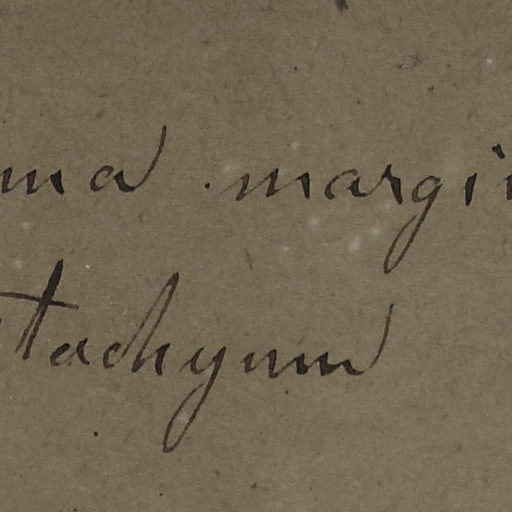 ma margi
tachyum